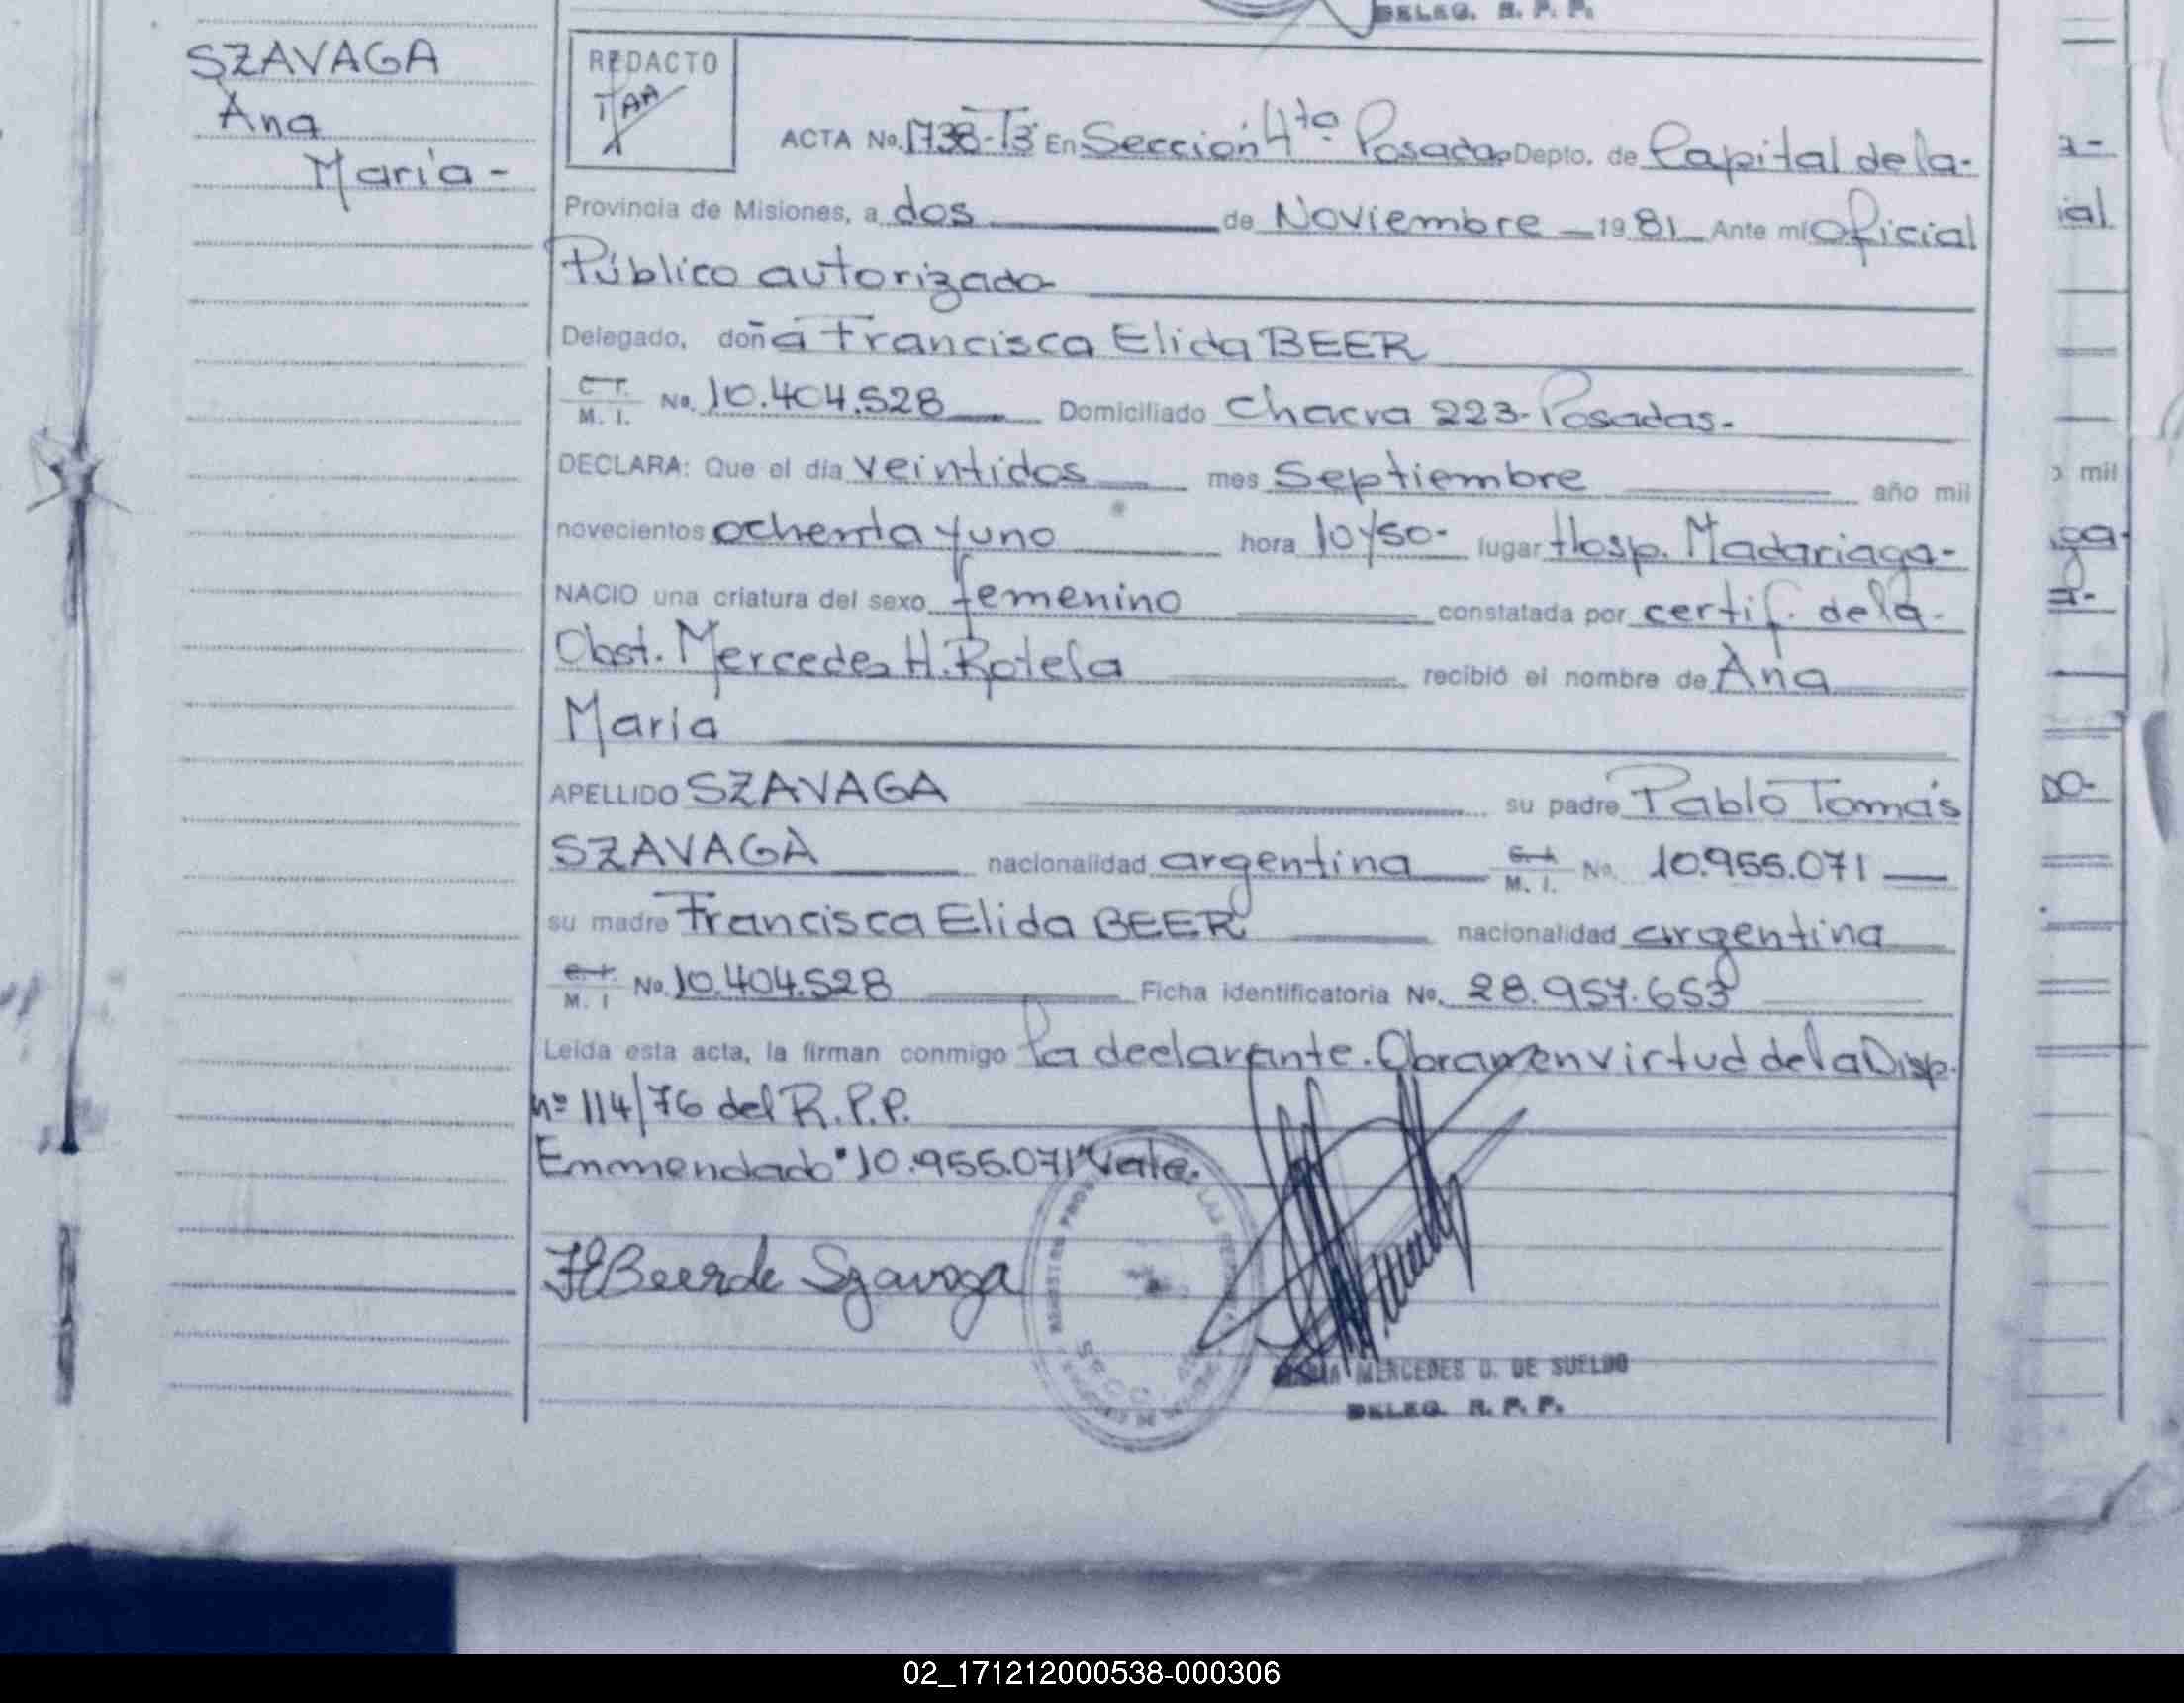 DELEG. R. P. P.
SZAVAGA
Ana
María-
REDACTO
ACTA No. 1738-T3 En Sección 4ta Posadas Depto. de Capital de la-
Provincia de Misiones, a dos de Noviembre 1981 Ante mí Oficial
Público autorizado
Delegado, doña Francisca Elida BEER
C.I. M. I. No. 10.404.528 Domiciliado Chacra 223-Posadas.
DECLARA: Que el día veintidos mes Septiembre año mil
novecientos ochenta y uno hora 10y50- lugar Hosp. Madariaga-
NACIO una criatura del sexo femenino constatada por certif. de la-
Obst. Mercedes H. Rotela recibió el nombre de Ana
María
APELLIDO SZAVAGA su padre Pablo Tomás
SZAVAGA nacionalidad argentina C.I. M. I. No. 10.955.071
su madre Francisca Elida BEER nacionalidad argentina
C.I. M. I No. 10.404.528 Ficha identificatoria No. 28.957.653
Leída esta acta, la firman conmigo la declarante. Obran en virtud de la Disp.
nº 114/76 del R.P.P.
Emmendado "10.955.071" Vale.
FEBeer de Szavaga
MERCEDES D. DE SUELDO
DELEG. R. P. P.
02_171212000538-000306